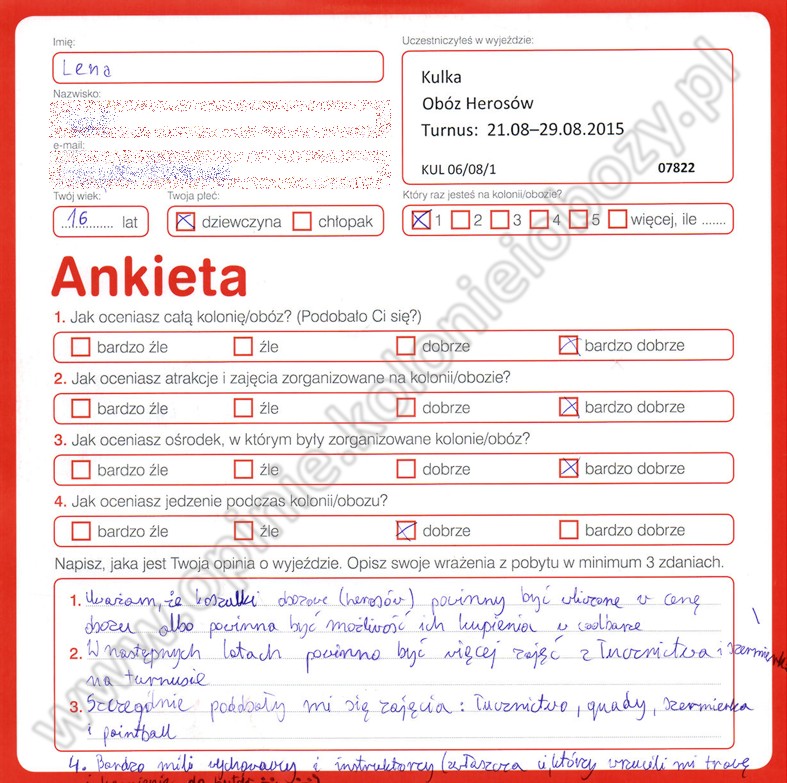 Imię:
Lena
Nazwisko:
e-mail:
Uczestniczyłeś w wyjeździe:
Kulka
Obóz Herosów
Turnus: 21.08–29.08.2015
KUL 06/08/1 07822
Twój wiek:
16 lat
Twoja płeć:
dziewczyna chłopak
Który raz jesteś na kolonii/obozie?
1 2 3 4 5 więcej, ile .......
Ankieta
1. Jak oceniasz całą kolonię/obóz? (Podobało Ci się?)
bardzo źle źle dobrze bardzo dobrze
2. Jak oceniasz atrakcje i zajęcia zorganizowane na kolonii/obozie?
bardzo źle źle dobrze bardzo dobrze
3. Jak oceniasz ośrodek, w którym były zorganizowane kolonie/obóz?
bardzo źle źle dobrze bardzo dobrze
4. Jak oceniasz jedzenie podczas kolonii/obozu?
bardzo źle źle dobrze bardzo dobrze
Napisz, jaka jest Twoja opinia o wyjeździe. Opisz swoje wrażenia z pobytu w minimum 3 zdaniach.
1. Uważam, że koszulki obozowe (herosów) powinny być wliczone w cenę
obozu albo powinna być możliwość ich kupienia
2. W następnych latach powinno być więcej zajęć z łucznictwa i szermierki
na turnusie
3. Szczególnie podobały mi się zajęcia: łucznictwo, quady, szermierka
i paintball
4. Bardzo mili wychowawcy i instruktorzy (zwłaszcza ci, którzy wrzucili mi trawę
www.opinie.kolonieiobozy.pl